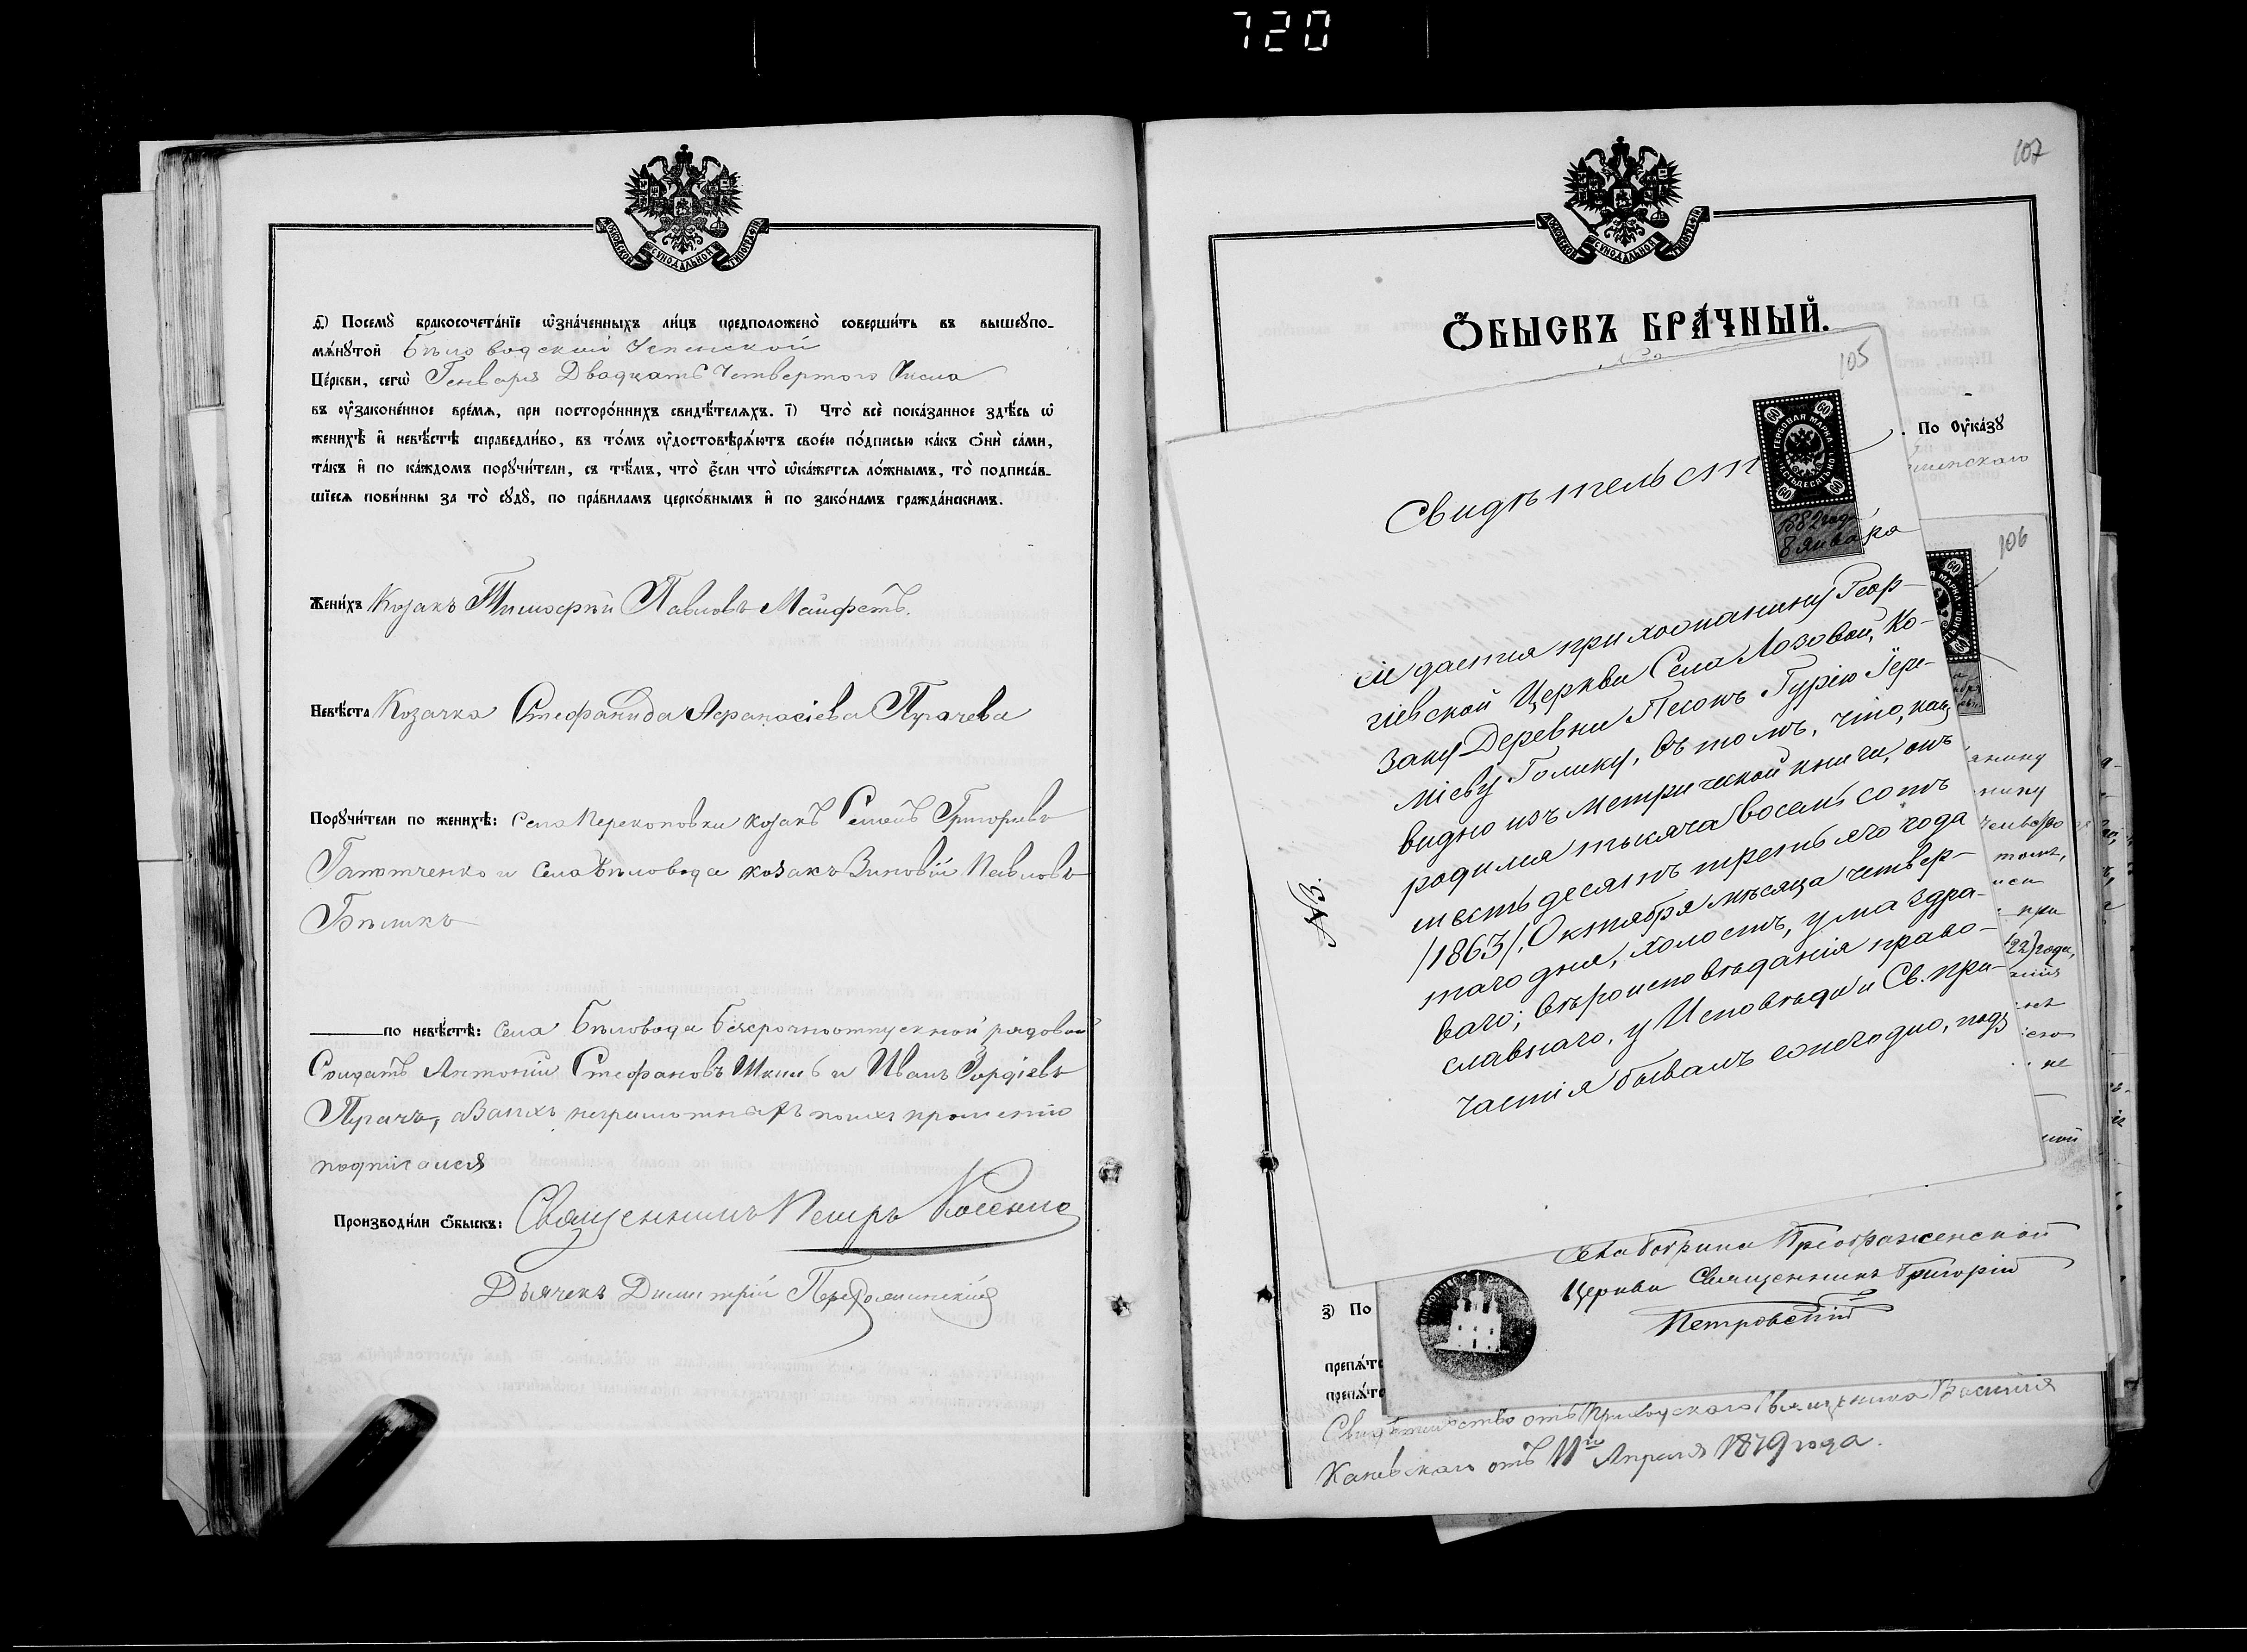 720
МОСКОВСКОЙ СѴНОДАЛЬНОЙ ТИПОГРАФІИ
Посемꙋ̀ бракосочета́нїе ѡ҆зна́ченныхъ ли́цъ предположено̀ соверши́ть въ вышеꙋпо-
мѧ́нꙋтой Бѣловодской Успенской
Це́ркви, сегѡ̀ Генваря Двадцать Четвертого Числа
въ ᲂу҆законе́нное вре́мѧ, при посторо́ннихъ свидѣ́телѧхъ. і҃) Что̀ всѐ пока́занное здѣ́сь ѡ҆
женихѣ̀ и҆ невѣ́стѣ справедли́во, въ то́мъ ᲂу҆достовѣрѧ́ютъ свое́ю по́дписью ка́къ ѻ҆нѝ са́ми,
та́къ и҆ по ка́ждомъ порꙋчи́тели, съ тѣ́мъ, что̀ є҆́сли что̀ ѡ҆ка́жетсѧ ло́жнымъ, то̀ подписа́в-
шїесѧ пови́нны за то̀ сꙋдꙋ̀, по пра́виламъ церко́внымъ и҆ по зако́намъ гражда́нскимъ.
Жени́хъ Козакъ Тимофей Павловъ Майфетъ.
Невѣ́ста Козачка Стефанида Афанасіева Пугачева
Порꙋчи́тели по женихѣ̀: Села Перекоповки козакъ Семенъ Григорievъ
и Села Бѣловода козакъ Зиновій Павловъ
Бѣликъ
по невѣ́стѣ: Села Бѣловода безсрочноотпускной рядовой
Солдатъ Антоній Стефановъ Шкиль и Иванъ Гордіевъ
а Вмѣсто неграмотныхъ
подписался
Производи́ли ѻ҆́быскъ: Священникъ Петръ
Дьячекъ Димитрій
107
МОСКОВСКОЙ СѴНОДАЛЬНОЙ ТИПОГРАФІИ
Ѻ҆БЫСКЪ БРА́ЧНЫЙ.
По ᲂу҆ка́зꙋ
105
60 60
ГЕРБОВАЯ МАРКА
ШЕСТЬДЕСЯТЪ КОП.
60 60
Свидѣтельст
1882 года
8 Января
106
сіе дается прихожанину Геор-
гіевской Церкви Села Лозовой, Ко-
заку Деревни Песокъ Гурію Іере-
міеву Голику, въ томъ, что, какъ
видно изъ метрической книги, онъ
родился тысяча восемь сотъ
шестьдесятъ третьяго года
/1863/, Октября мѣсяца четвер-
таго дня, холостъ, ума здра-
ваго; вѣроисповѣданія право-
славнаго, у Исповѣди и Св. При-
частія бывалъ ежегодно, подъ
№3.
Преображенской
Церкви Священникъ Григорій
Петровскій
з҃) По
препѧ́тс
препѧ́тс
Свидѣтельство отъ Приходскаго Священника Василія
Каневскаго отъ 11го Апреля 1879 года.